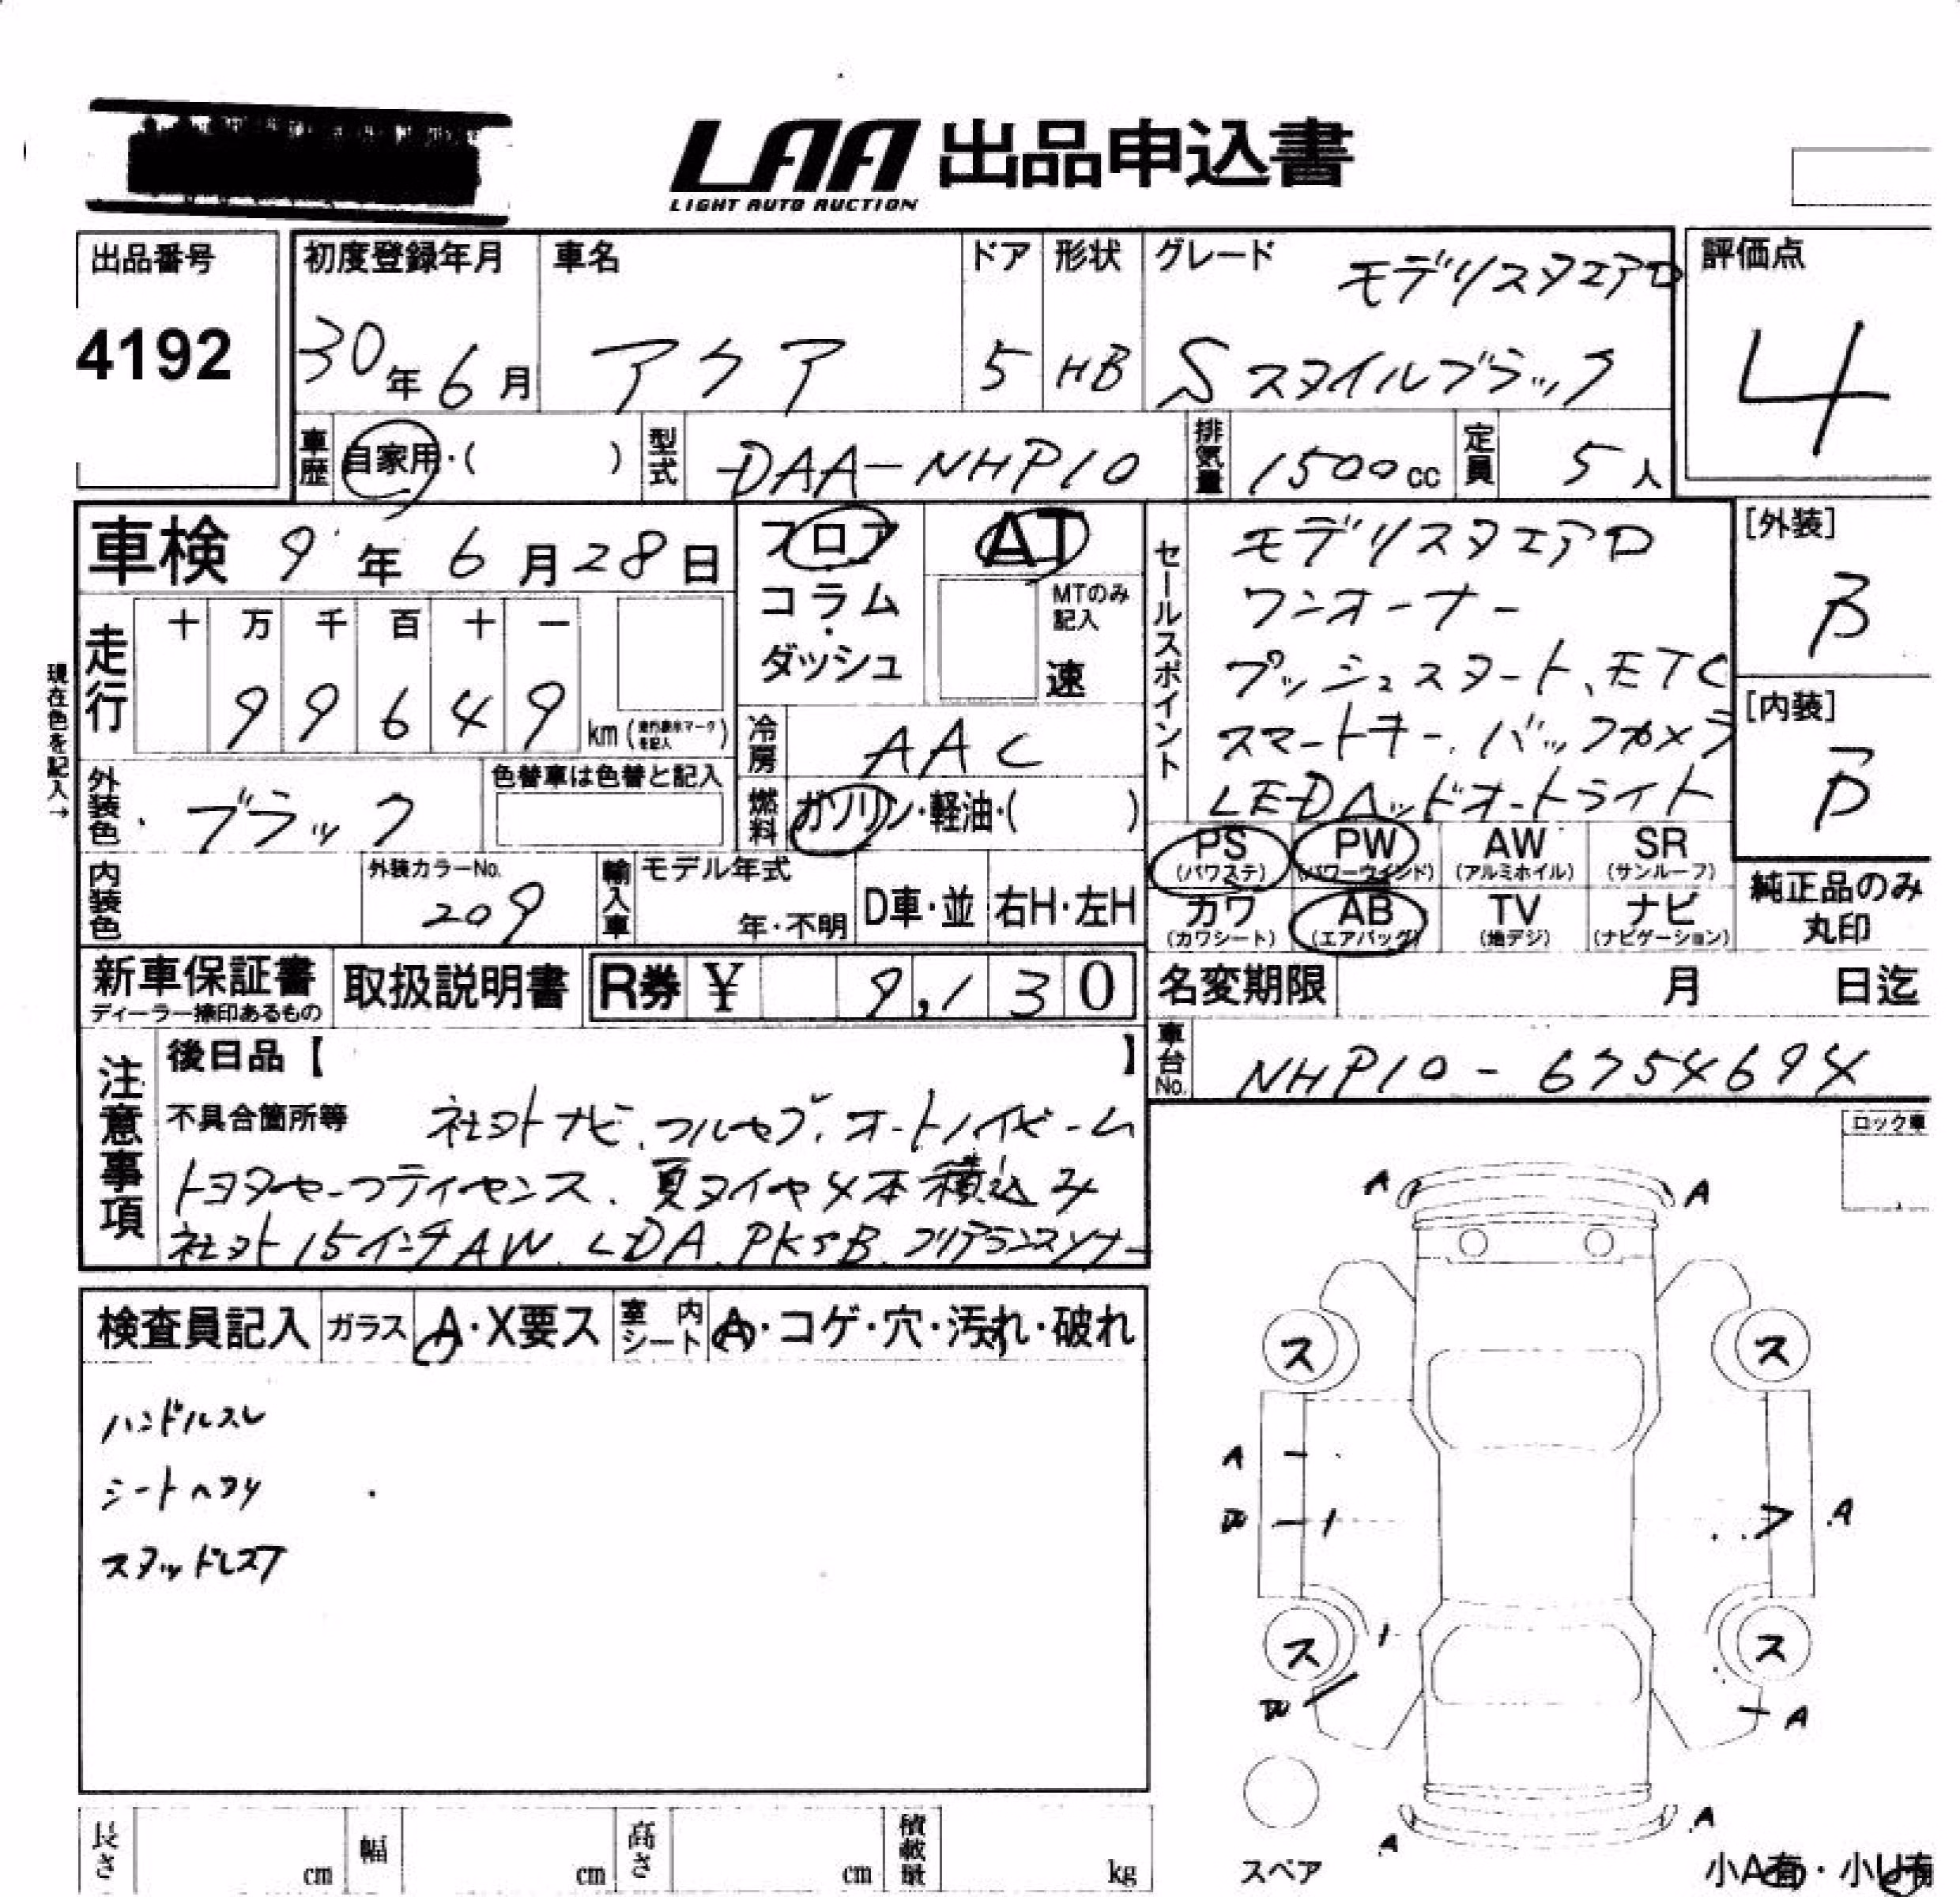 LAA 出品申込書
LIGHT AUTO AUCTION
出品番号
4192
初度登録年月
30年6月
車名
アクア
ドア
5
形状
HB
グレード
モデリスタエアロ
Sスタイルブラック
評価点
4
車歴
自家用・( )
型式
DAA-NHP10
排気量
1500cc
定員
5人
車検 9年6月28日
走行
十 万 千 百 十 一
9 9 6 4 9 km
現在色を記入→
外装色
ブラック
色替車は色替と記入
内装色
外装カラーNo.
209
輸入車
モデル年式
年・不明
D車・並
右H・左H
フロア
コラム
・
ダッシュ
AT
MTのみ
記入
速
冷房
AAC
燃料
ガソリン・軽油・( )
セールスポイント
モデリスタエアロ
ワンオーナー
プッシュスタート、ETC
スマートキー、バックカメラ
LEDヘッドオートライト
[外装]
B
[内装]
B
PS
(パワステ)
PW
(パワーウインド)
AW
(アルミホイル)
SR
(サンルーフ)
カワ
(カワシート)
AB
(エアバッグ)
TV
(地デジ)
ナビ
(ナビゲーション)
純正品のみ
丸印
新車保証書
ディーラー捺印あるもの
取扱説明書
R券 ¥ 9,130
名変期限 月 日迄
車台No.
NHP10-6754694
注意事項
後日品【 】
不具合箇所等 社外ナビ、フルセグ、オートハイビーム
トヨタセーフティセンス、夏タイヤ4本積込み
社外15インチAW、LDA、PKSB、クリアランスソナー
検査員記入
ガラス
A・X要ス
室内シート
A・コゲ・穴・汚れ・破れ
ハンドルスレ
シートヘタリ
スタッドレスT
ロック車
A A
ス ス
A
A
ス ス
A
A
A
スペア
小A有・小U有
長さ cm
幅 cm
高さ cm
積載量 kg